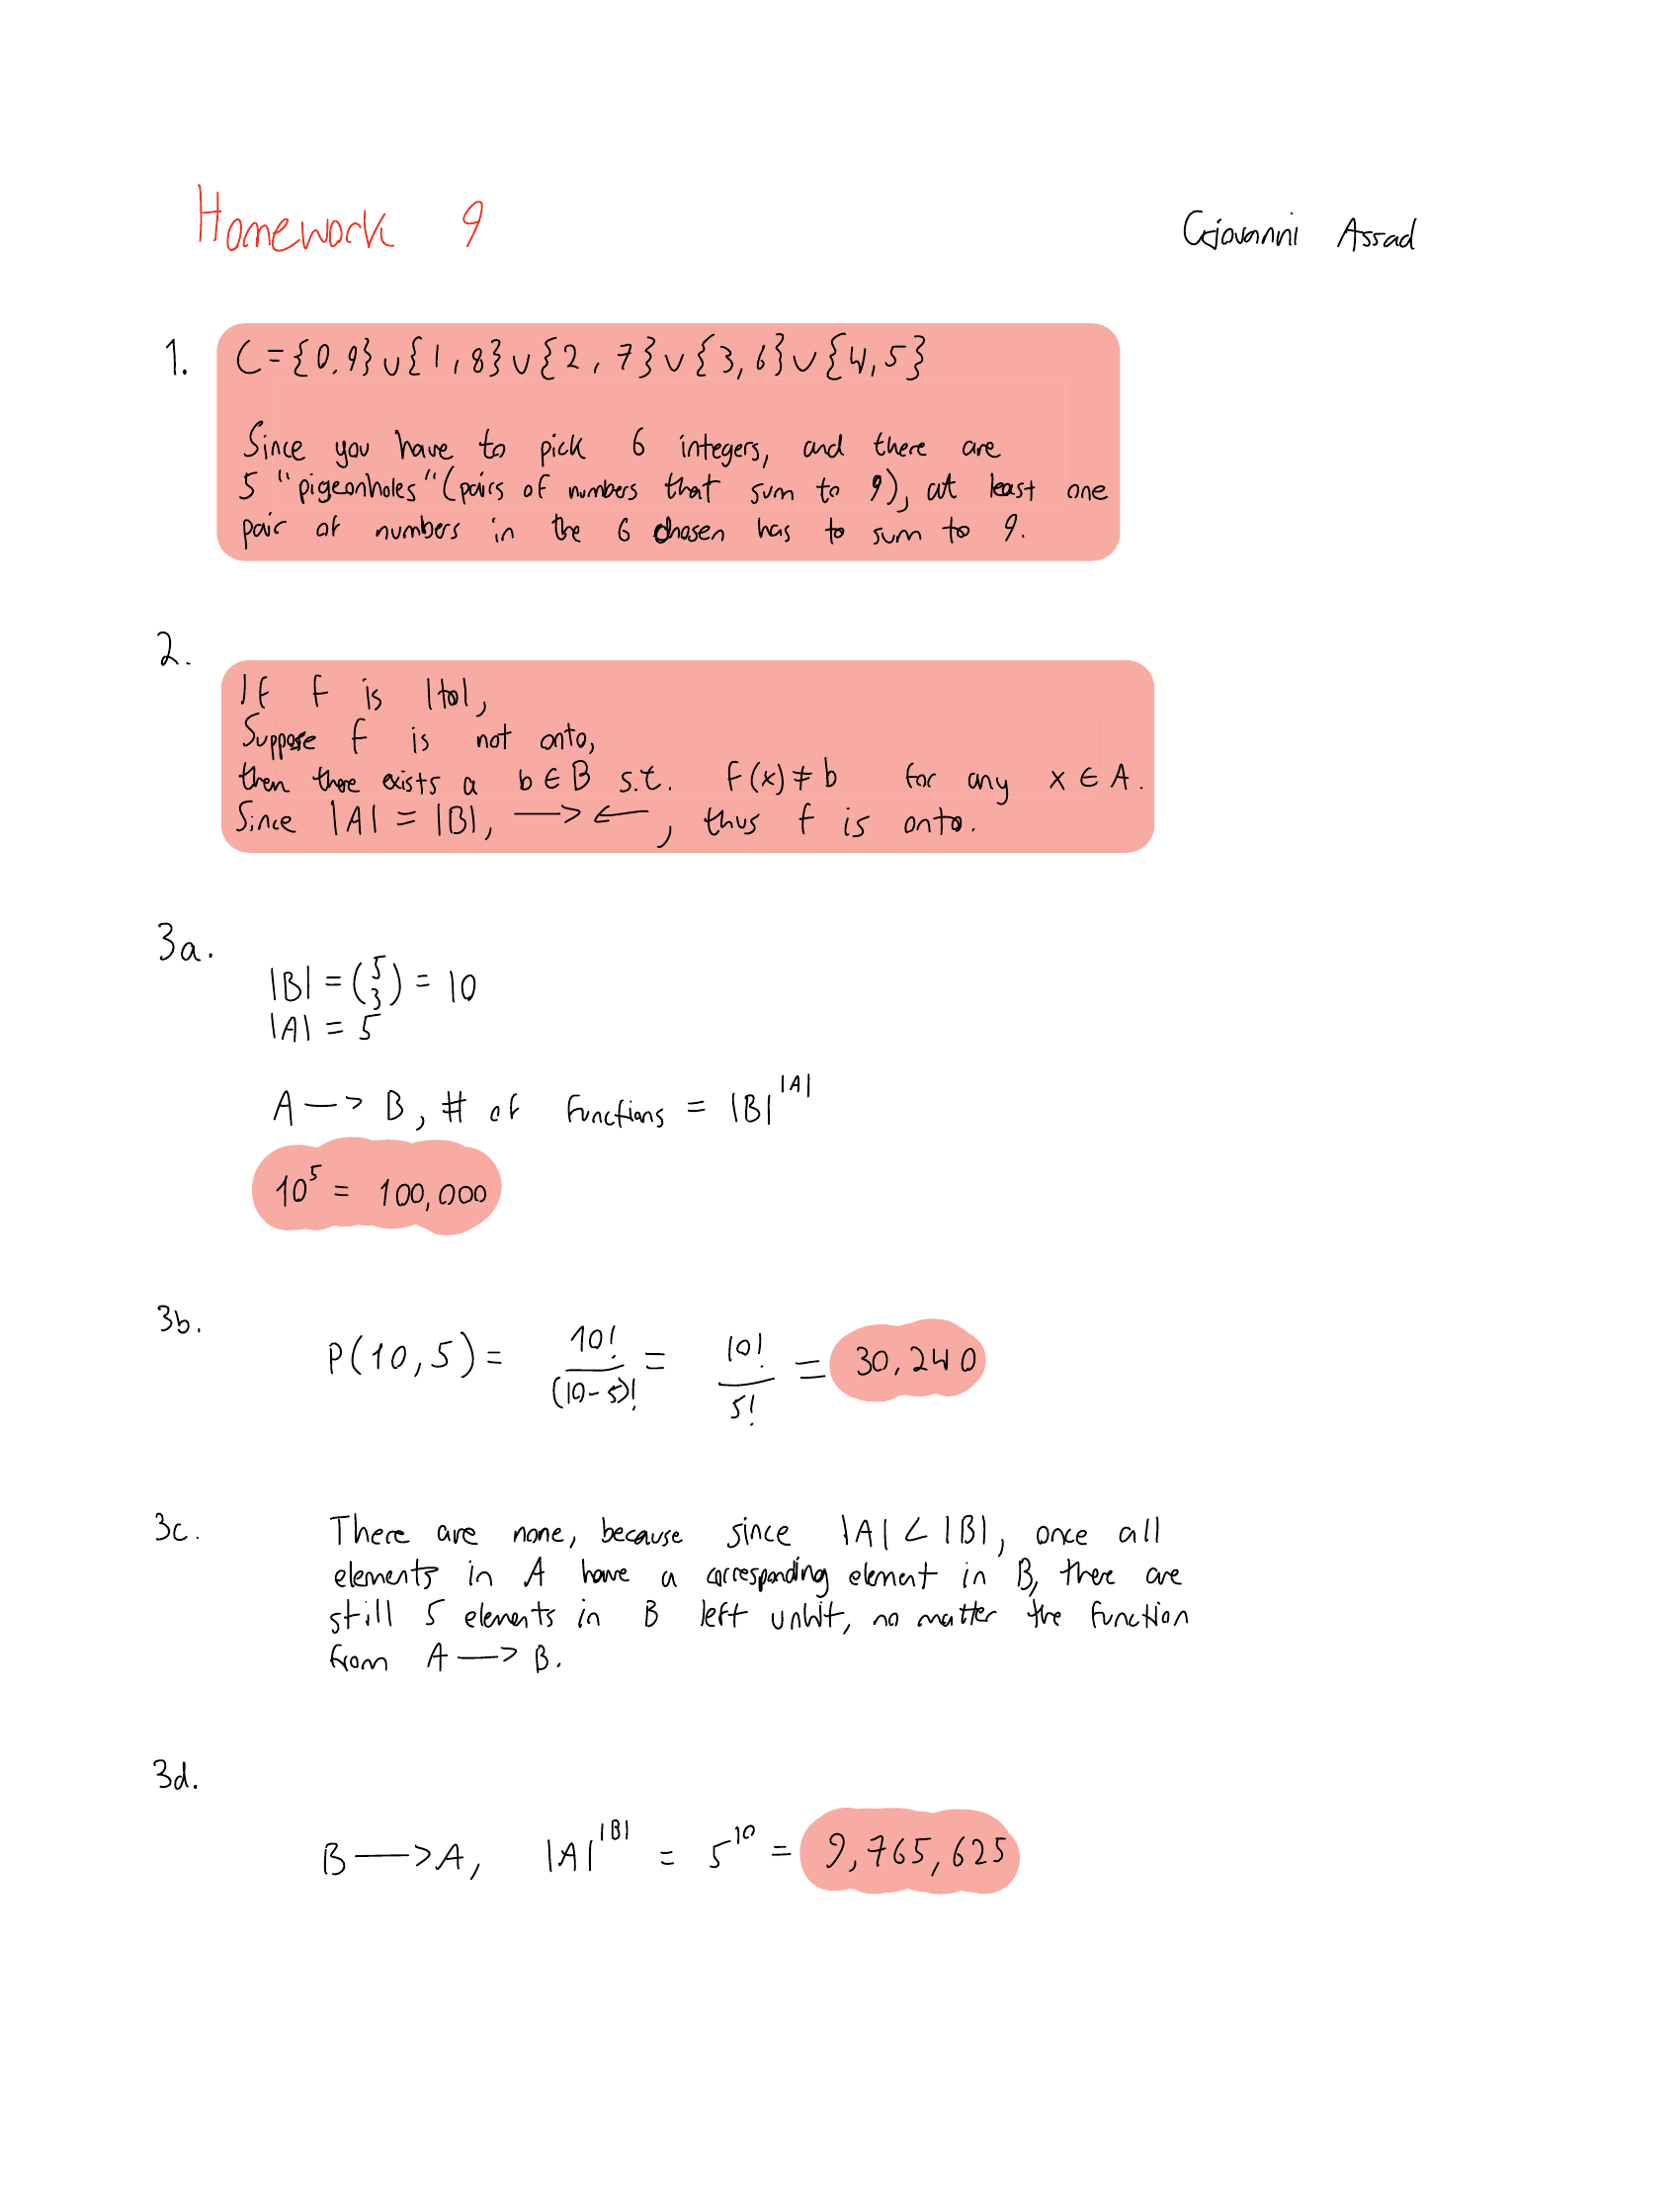 Homework 9
Giovanni Assad
1.
C={0,9}∪{1,8}∪{2,7}∪{3,6}∪{4,5}
Since you have to pick 6 integers, and there are
5 "pigeonholes" (pairs of numbers that sum to 9), at least one
pair of numbers in the 6 chosen has to sum to 9.
2.
If f is 1to1,
Suppose f is not onto,
then there exists a b∈B s.t. f(x)≠b for any x∈A.
Since |A|=|B|, →←, thus f is onto.
3a.
|B|=(5 3)=10
|A|=5
A→B, # of functions = |B|^|A|
10^5 = 100,000
3b.
P(10,5)= 10!/(10-5)! = 10!/5! = 30,240
3c.
There are none, because since |A|<|B|, once all
elements in A have a corresponding element in B, there are
still 5 elements in B left unhit, no matter the function
from A→B.
3d.
B→A, |A|^|B| = 5^10 = 9,765,625